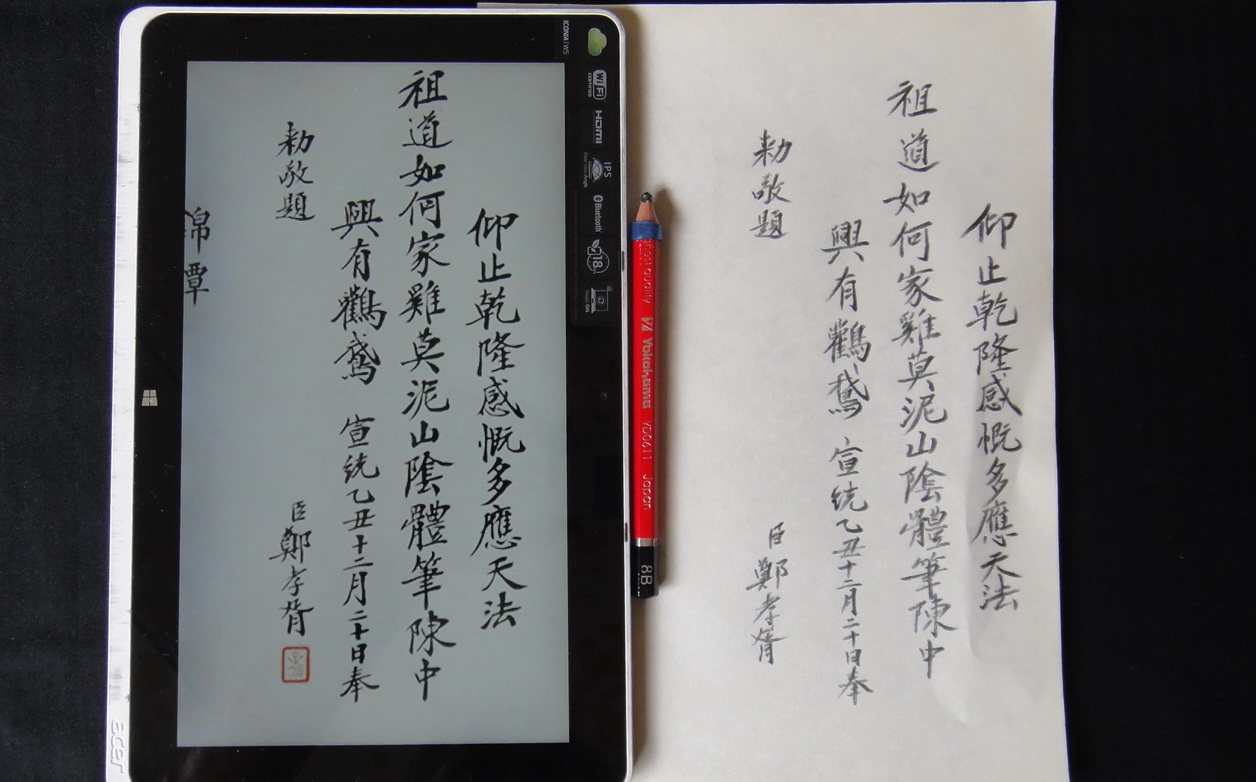 仰止乾隆感慨多應天法
祖道如何家雞莫泥山陰體筆陳中
興有鸛鵞 宣統乙丑十二月二十日奉
勅敬題
臣鄭孝胥
覃
ICONIA W5
Wi Fi
CERTIFIED
HDMI
IPS
Bluetooth
18
acer
Yokohama YD0611 Japan
8B
仰止乾隆感慨多應天法
祖道如何家雞莫泥山陰體筆陳中
興有鸛鵞 宣統乙丑十二月二十日奉
勅敬題
臣鄭孝胥